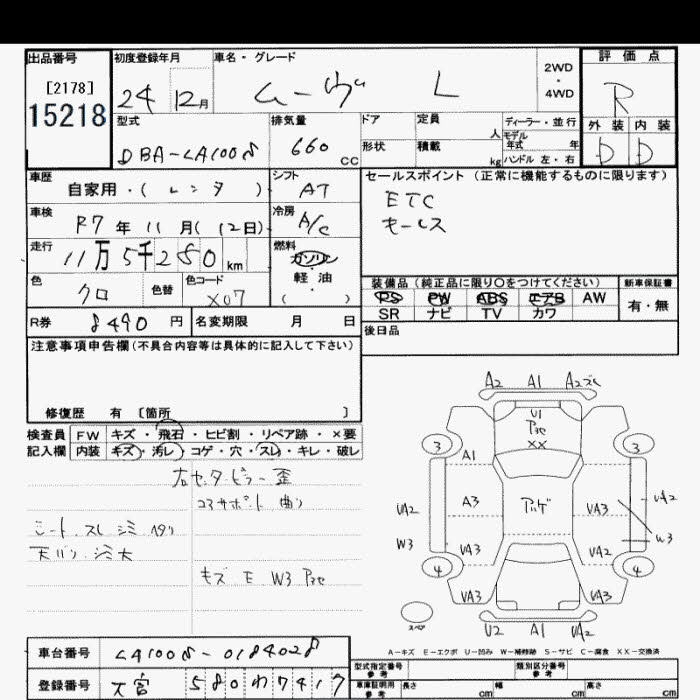 出品番号 初度登録年月 車名・グレード 評価点
[2178]
15218
24 12月 ムーヴ L 2WD・4WD R
型式 排気量 ドア 定員 人 ディーラー・並行 外装 内装
DBA-LA100S 660 CC 形状 積載 kg モデル年式 年 ハンドル 左・右 D D
車歴 自家用・(レンタ) シフト AT セールスポイント(正常に機能するものに限ります)
車検 R7年11月(12日) 冷房 A/C ETC
キーレス
走行 11万5千280km 燃料 ガソリン・軽油・( )
色 クロ 色替 色コード X07
装備品(純正品に限り○をつけてください) 新車保証書
PS PW ABS エアB AW 有・無
SR ナビ TV カワ
R券 8490円 名変期限 月 日 後日品
注意事項申告欄(不具合内容等は具体的に記入して下さい)
修復歴 有 〔箇所 〕
検査員 FW キズ・飛石・ヒビ割・リペア跡・×要
記入欄 内装 キズ・汚レ・コゲ・穴・スレ・キレ・破レ
右センターピラー歪
コアサポート 曲り
シート スレ シミ ヘタリ
天バリ シミ大
キズ E W3 Pセ
A2 A1 A2ズレ
U1
Pセ
XX
3 3
A1
A3 Pハゲ UA3 UA2
UA2
W3 UA3 UA2 W3
4 4
UA3 UA3
スペア U2 A1 UA2
A-キズ E-エクボ U-凹み W-補修跡 S-サビ C-腐食 XX-交換済
車台番号 LA100S-0184028
登録番号 大宮 580わ7417
型式指定番号 参考 類別区分番号 参考
車庫証明用 参考 長さ cm 幅 cm 高さ cm